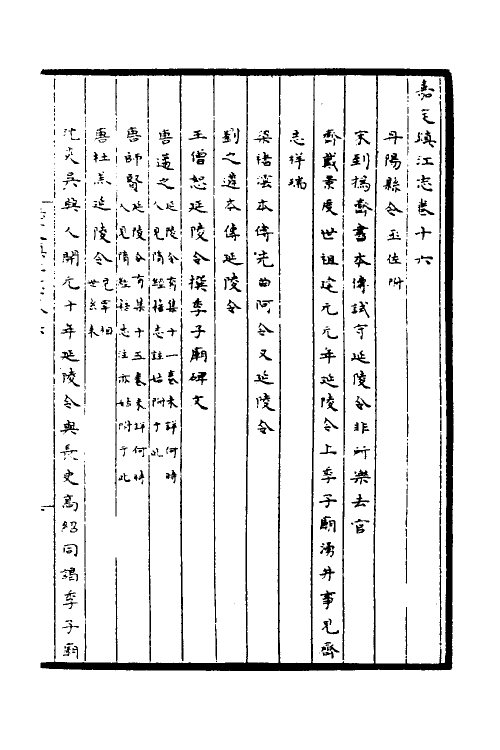 嘉定鎮江志卷十六
丹陽縣令丞佐附
宋到撝齊書本傳試守延陵令非所樂去官
齊戴景度世祖建元元年延陵令上季子廟湧井事見齊
志祥瑞
梁褚澐本傳先曲阿令又延陵令
劉之遴本傳延陵令
王僧恕延陵令撰季子廟碑文
唐邁之延陵令有集十一卷未詳何時人見隋經籍志註姑附于此
唐師賢延陵令有集十五卷未詳何時人見隋經籍志注亦姑附于此
唐杜羔延陵令見宰相世系表
沈炎吳興人開元十年延陵令與長史高紹同謁季子廟